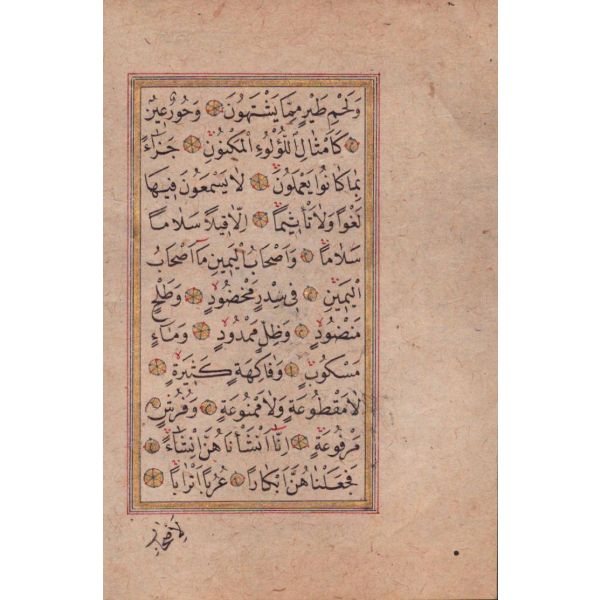 وَلَحْمِ طَيْرٍ مِمَّا يَشْتَهُونَ وَحُورٌ عِينٌ
كَاَمْثَالِ اللُّؤْلُوءِ الْمَكْنُونِ جَزَٓاءً
بِمَا كَانُوا يَعْمَلُونَ لَا يَسْمَعُونَ فِيهَا
لَغْوًا وَلَا تَأْثِيمًا اِلَّا قِيلًا سَلَامًا
سَلَامًا وَاَصْحَابُ الْيَمِينِ مَٓا اَصْحَابُ
الْيَمِينِ فِي سِدْرٍ مَخْضُودٍ وَطَلْحٍ
مَنْضُودٍ وَظِلٍّ مَمْدُودٍ وَمَٓاءٍ
مَسْكُوبٍ وَفَاكِهَةٍ كَثِيرَةٍ
لَا مَقْطُوعَةٍ وَلَا مَمْنُوعَةٍ وَفُرُشٍ
مَرْفُوعَةٍ اِنَّٓا اَنْشَأْنَاهُنَّ اِنْشَٓاءً
فَجَعَلْنَاهُنَّ اَبْكَارًا عُرُبًا اَتْرَابًا
لِاَصْحَابِ